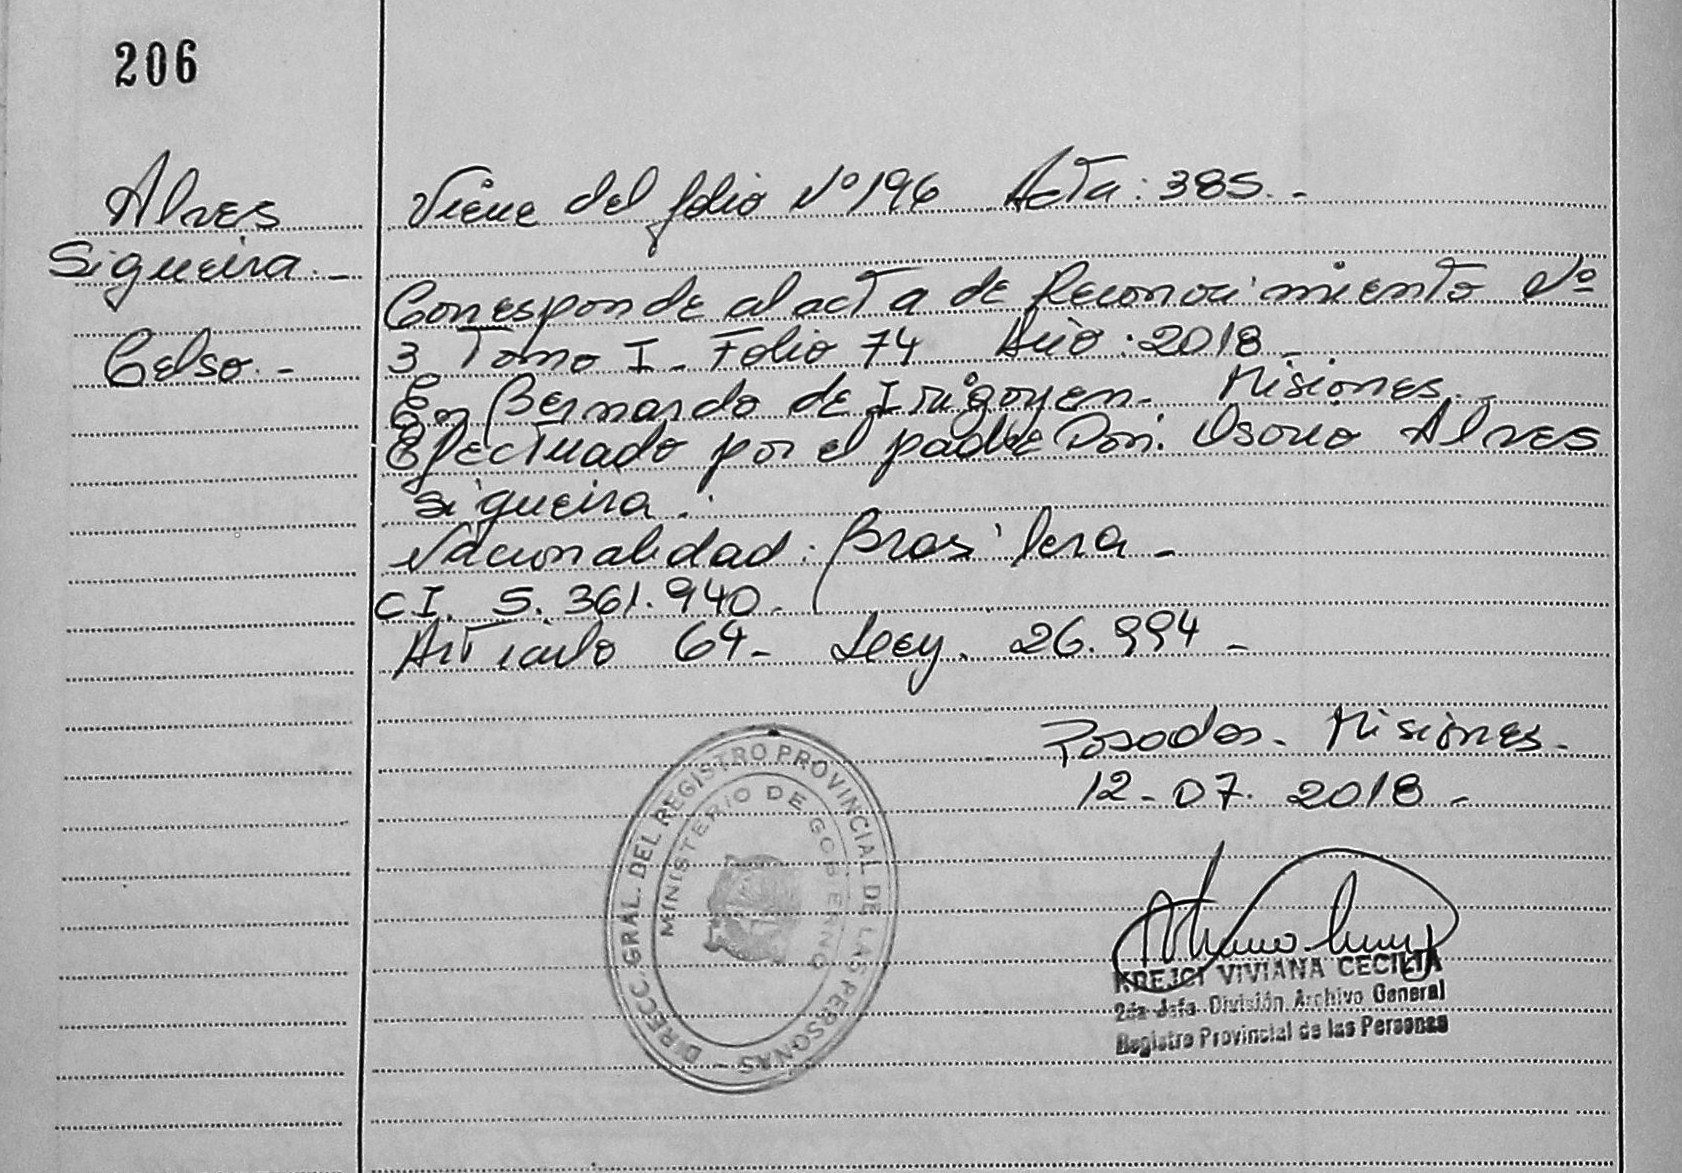 206
Alves
Sigueira. -
Celso. -
Viene del folio Nº 196 Acta: 385. -
Corresponde al acta de Reconocimiento Nº
3 Tomo I - Folio 74 Año: 2018 -
En Bernardo de Irigoyen - Misiones. -
Efectuado por el padre Don: Osorio Alves
Sigueira.
Nacionalidad: Brasilera -
CI. 5.361.940 -
Articulo 64 - Ley. 26.994 -
Posadas - Misiones. -
12 - 07. 2018 -
DIRECC. GRAL. DEL REGISTRO PROVINCIAL DE LAS PERSONAS -
MINISTERIO DE GOBIERNO
KREJCI VIVIANA CECILIA
2da Jefa División Archivo General
Registro Provincial de las Personas